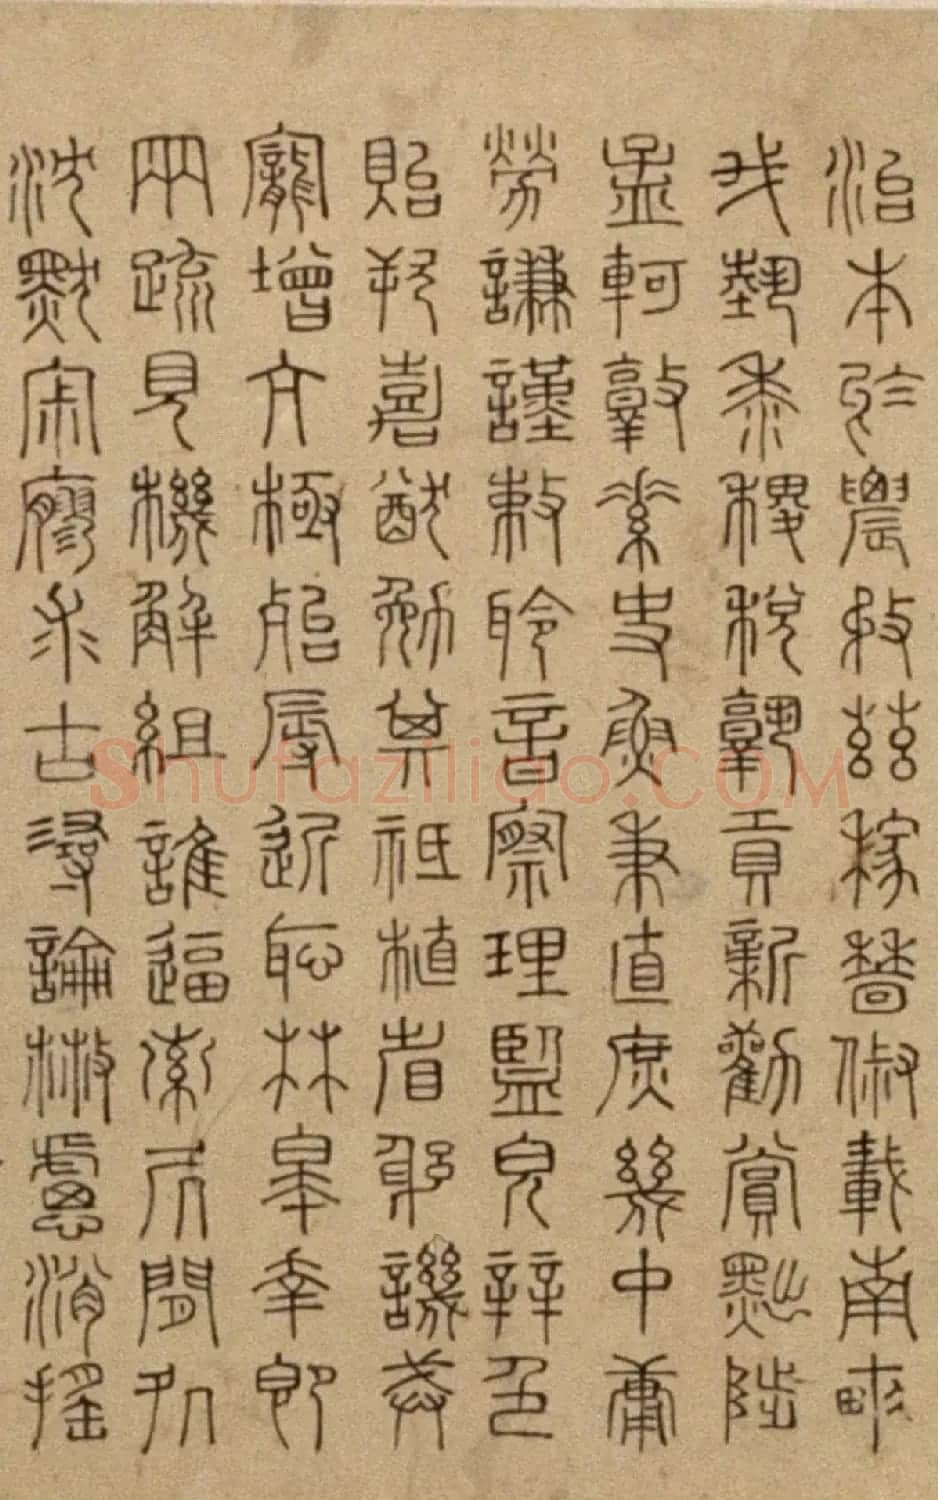 治本於農務茲稼穡俶載南畝
我藝黍稷稅熟貢新勸賞黜陟
孟軻敦素史魚秉直庶幾中庸
勞謙謹敕聆音察理監皃辨色
貽厥嘉猷勉其祗植省躬譏誡
寵增亢極殆辱近恥林皋幸即
兩疏見機解組誰逼索居閒處
沈默寂寥求古尋論散慮消搖
Shufaziliao.COM